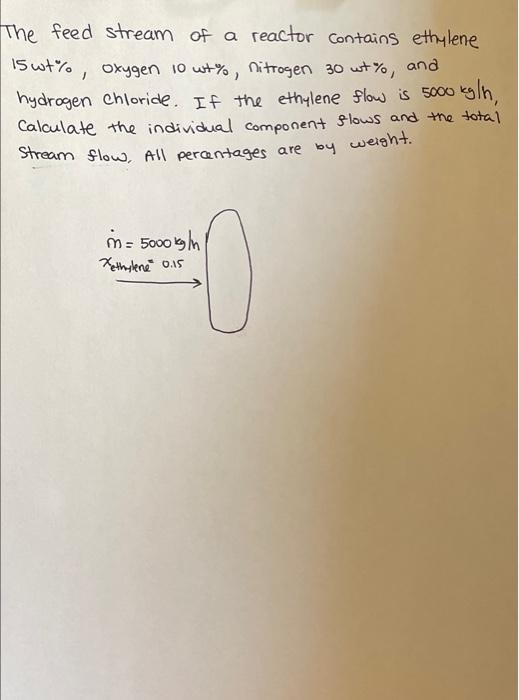 The feed stream of a reactor contains ethylene
15 wt%, oxygen 10 wt%, nitrogen 30 wt%, and
hydrogen chloride. If the ethylene flow is 5000 kg/h,
Calculate the individual component flows and the total
Stream flow. All percentages are by weight.
ṁ = 5000 kg/h
xethylene = 0.15